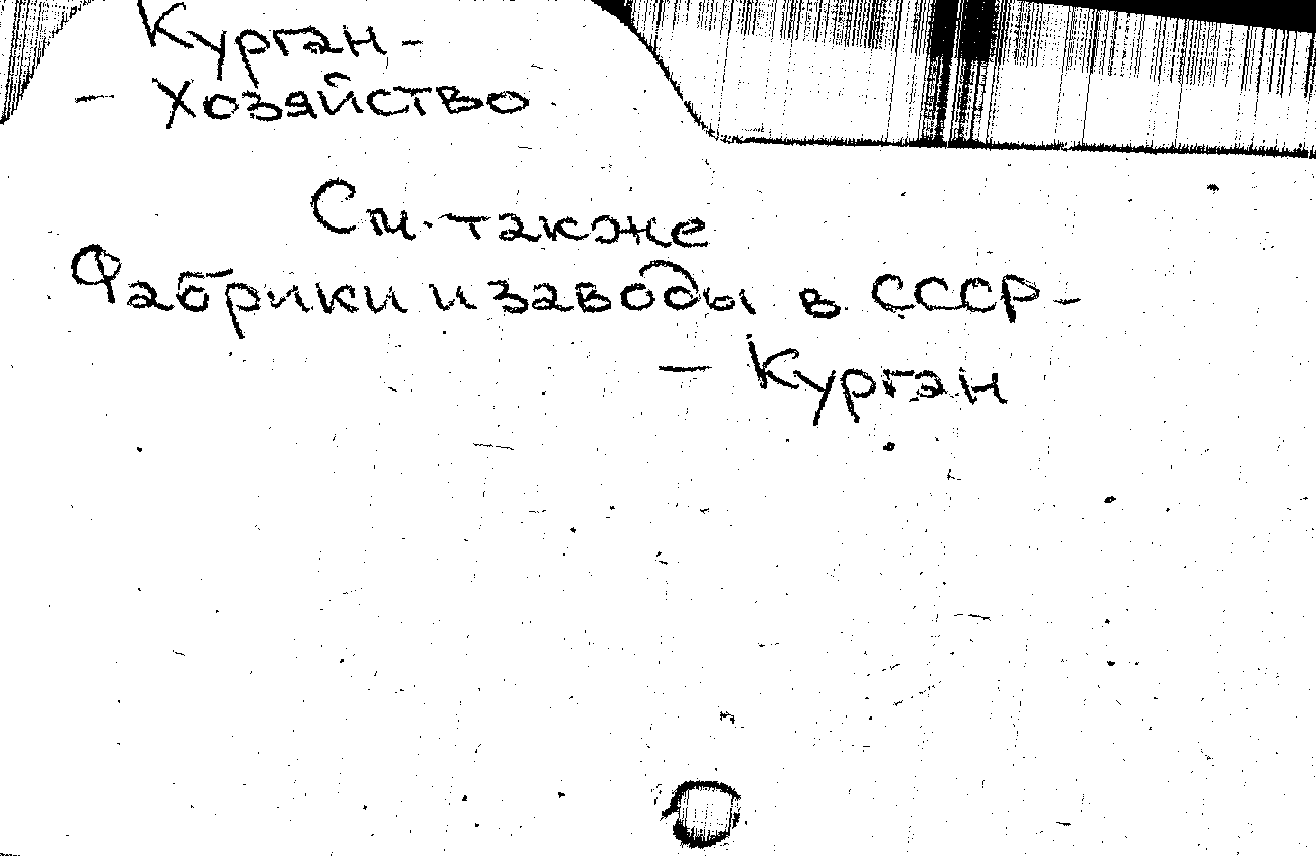 Курган -
- Хозяйство
См. также
Фабрики и заводы в СССР -
- Курган